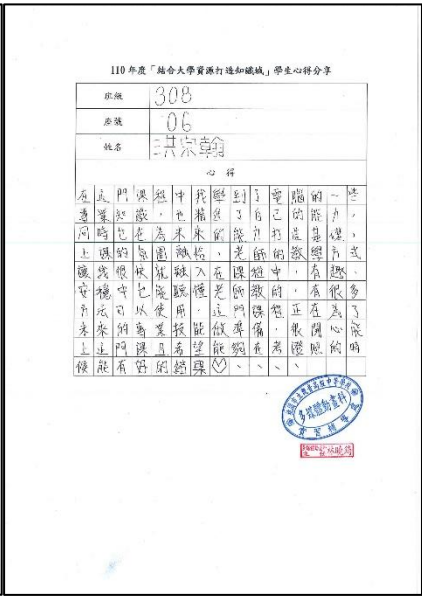 110 年度「結合大學資源打造知識城」學生心得分享
班級 308
座號 06
姓名 洪宗翰
心得
在這門課程中我學到了電腦的一些
專業知識,也精進了自己的能力,
同時也在為未來的能力打造基礎,
上課的氛圍融洽,老師的教學方式
讓我很快就融入在課程中,有趣、
安穩中也能聽懂老師教的,有很多
方法可以使用,這門課程正在為了
未來的專業技能做準備,很開心能
上這門課,希望能夠在考證照的時
候能有好的結果♡、、、
多媒體動畫科